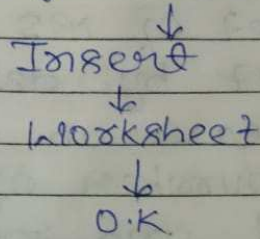 ↓
Insert
↓
Worksheet
↓
O.K